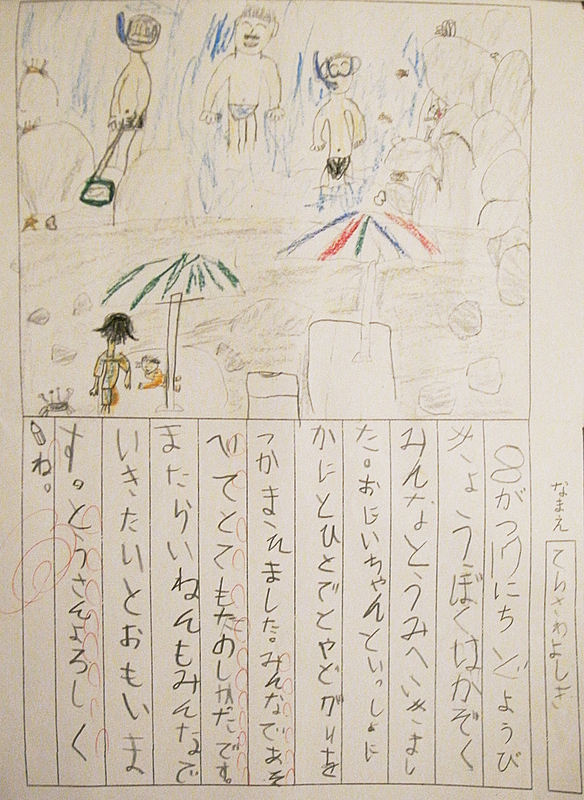 なまえ
てらさわよしき
8がつ にちどようび
きょうぼくはかぞく
みんなとうみへいきまし
た。おじいちゃんといっしょに
かにとひとでとやどがりを
つかまえれました。みんなであそ
べてとてもたのしかたです。
またらいねんもみんなで
いきたいとおもいま
す。とうさんよろしく
ね。